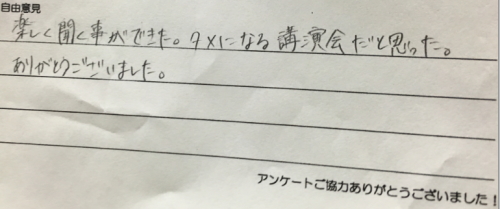 自由意見
楽しく聞く事ができた。タメになる講演会だと思った。
ありがとうございました。
アンケートご協力ありがとうございました!